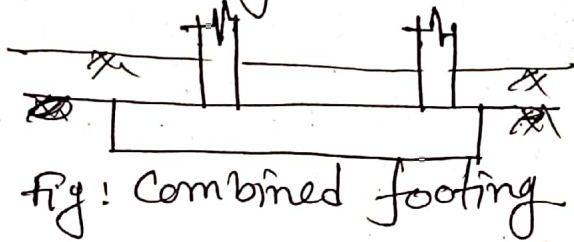 Fig: Combined footing